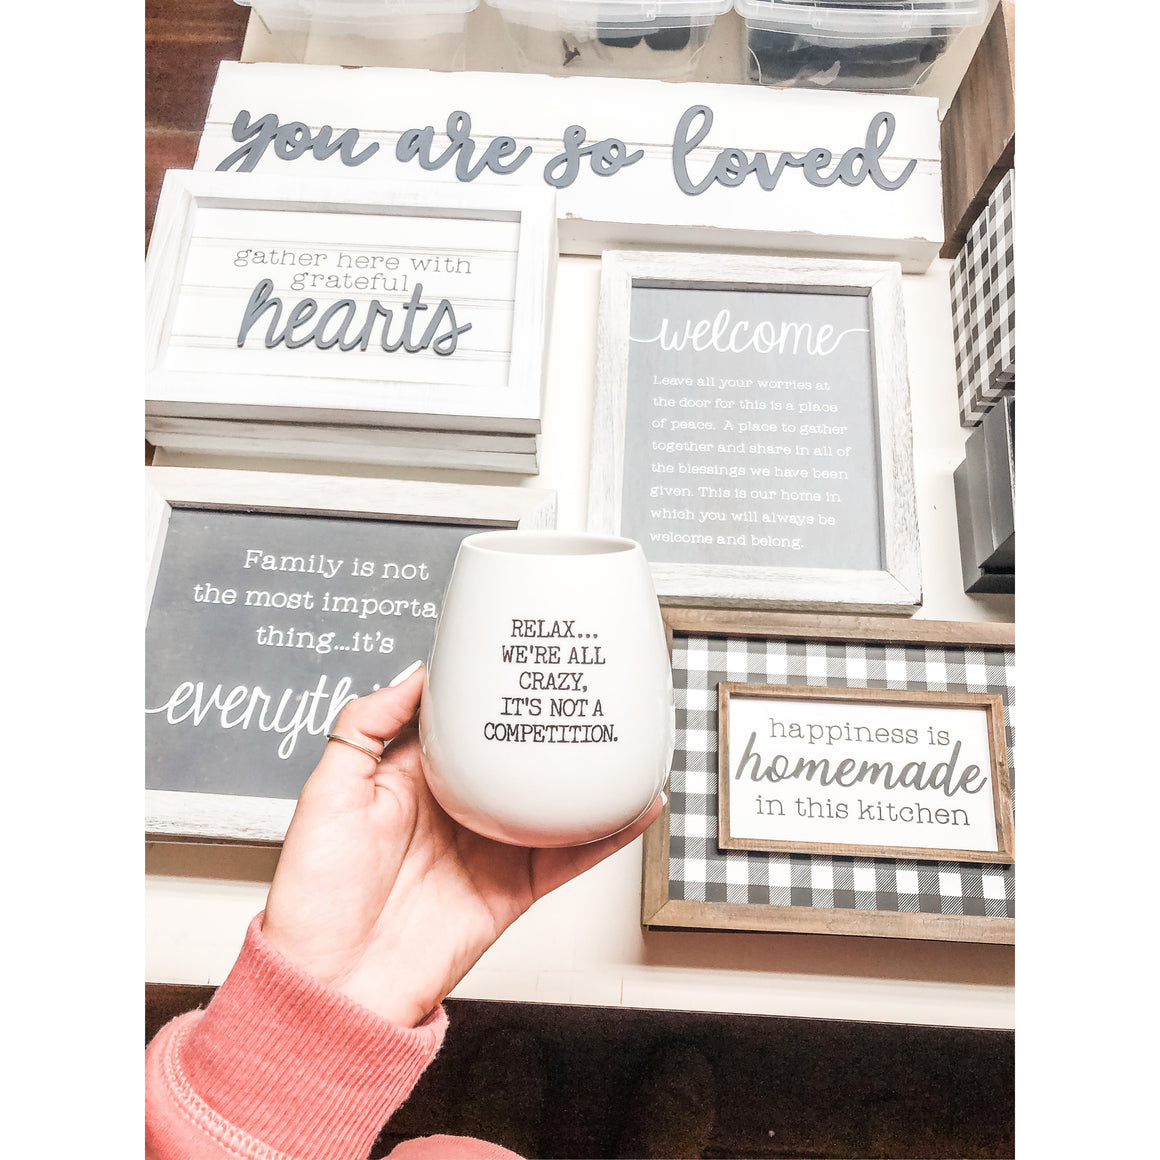 you are so loved
gather here with
grateful
hearts
welcome
Leave all your worries at
the door for this is a place
of peace. A place to gather
together and share in all of
the blessings we have been
given. This is our home in
which you will always be
welcome and belong.
Family is not
the most importa
thing...it's
everythi
RELAX...
WE'RE ALL
CRAZY,
IT'S NOT A
COMPETITION.
happiness is
homemade
in this kitchen